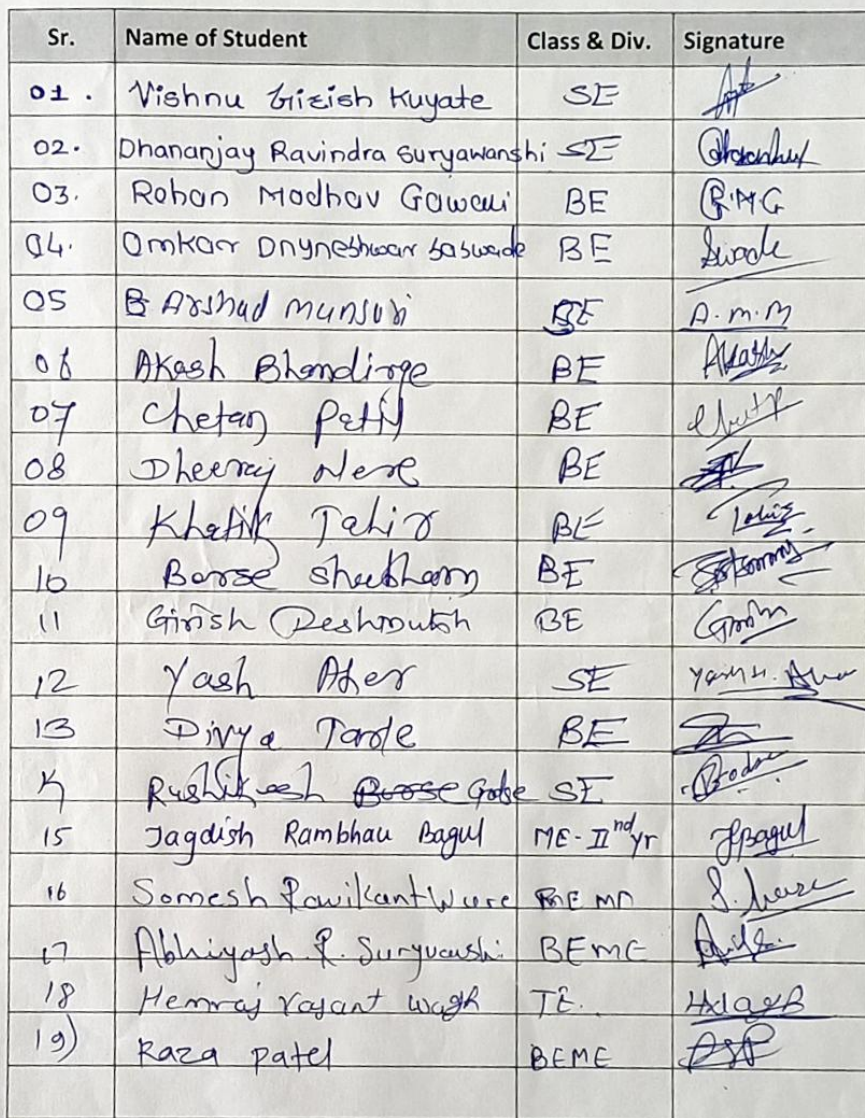 Sr. Name of Student Class & Div. Signature
01. Vishnu Girish Kuyate SE
02. Dhananjay Ravindra Suryawanshi SE
03. Rohan Madhav Gawali BE R.M.G
04. Omkar Dnyneshwar Saswade BE
05 Arshad Munsuri BE A.M.M
06 Akash Bhandirge BE Akash
07 Chetan Patil BE
08 Dheeraj Nere BE
09 Khatik Tahir BE
10 Borse Shubham BE
11 Girish Deshmukh BE
12 Yash Aher SE
13 Divya Tarle BE
Rushikesh Borse SE
15 Jagdish Rambhau Bagul ME-II nd yr JBagul
16 Somesh Ravikant
17 Abhiyash R. BEME
18 Hemraj Vasant Wagh TE.
19) Raza Patel BEME